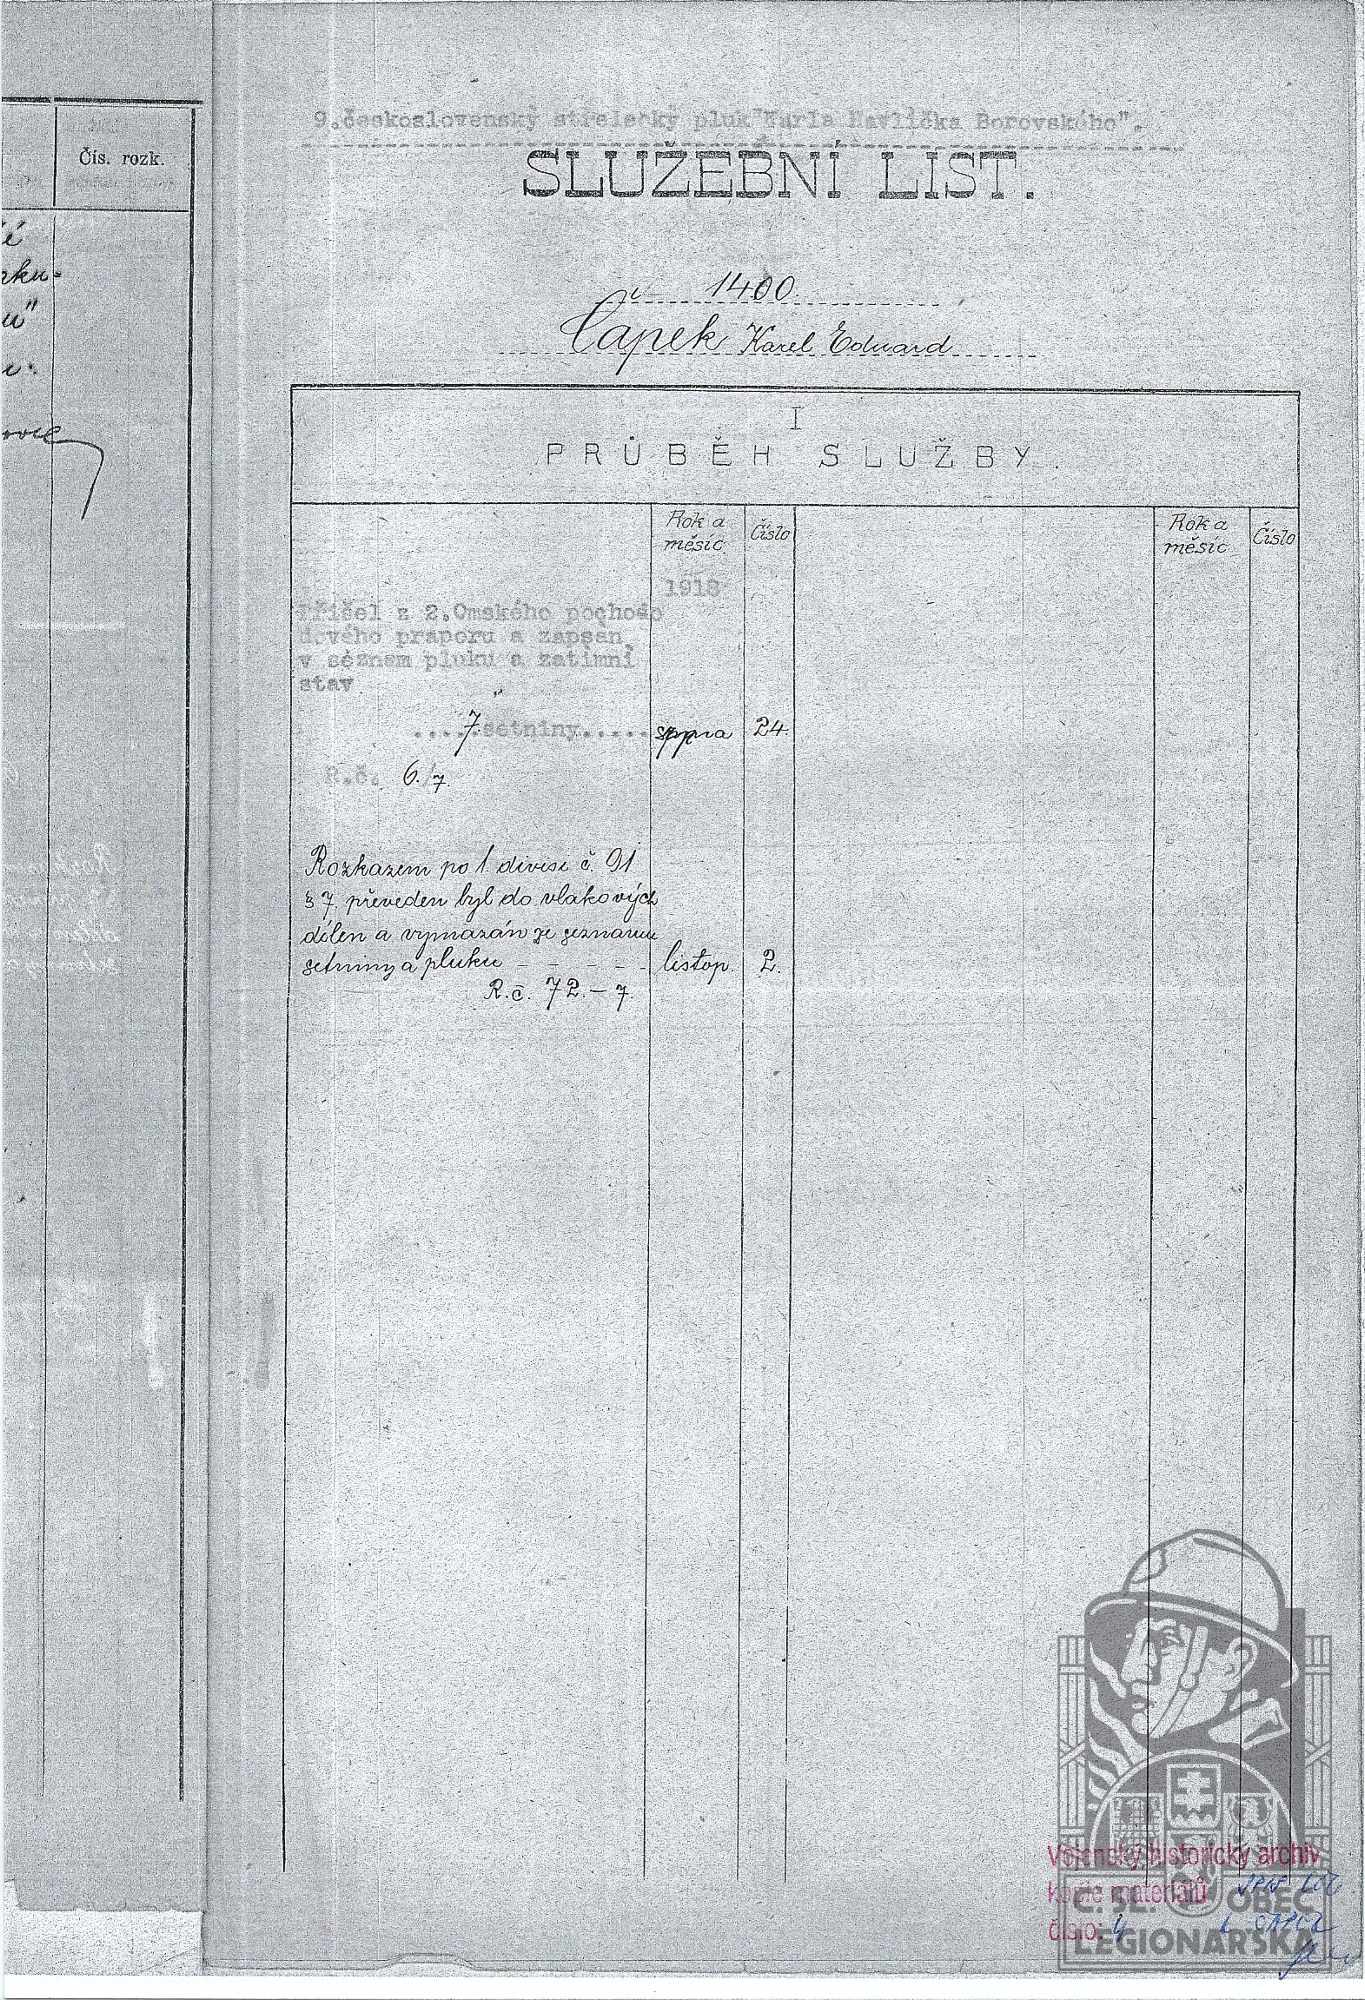 Čís. rozk.
é
rku-
u"
9.československý střelecký pluk "Karla Havlíčka Borovského".
SLUŽEBNÍ LIST.
1400.
Čapek Karel Eduard
I
PRŮBĚH SLUŽBY.
Rok a měsíc
Číslo
Rok a měsíc
Číslo
1918
Přišel z 2.Omského pochodo
dového praporu a zapsan
v seznam pluku a zatimni
stav
.....7 setniny.....
srpna
24.
R.č. 6./7
Rozkazem po 1. divisi č. 91
§ 7. převeden byl do vlakových
dílen a vymazán ze seznamu
setniny a pluku - - - - -
listop.
2.
R.č. 72.-7.
Vojenský historický archiv
kopie materiálů
číslo: 4
Č. SL. OBEC
LEGIONÁŘSKÁ